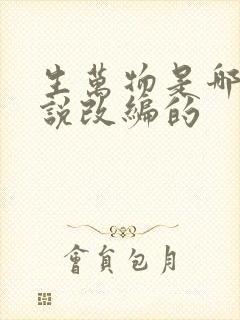 生萬物是哪
說改編的
會員包月